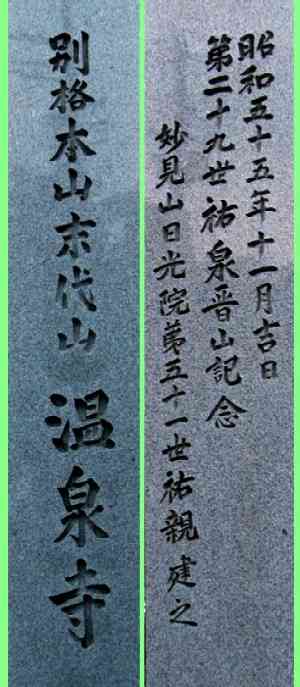 別格本山末代山温泉寺
昭和五十五年十一月吉日
第二十九世祐泉晋山記念
妙見山日光院第五十一世祐親建之